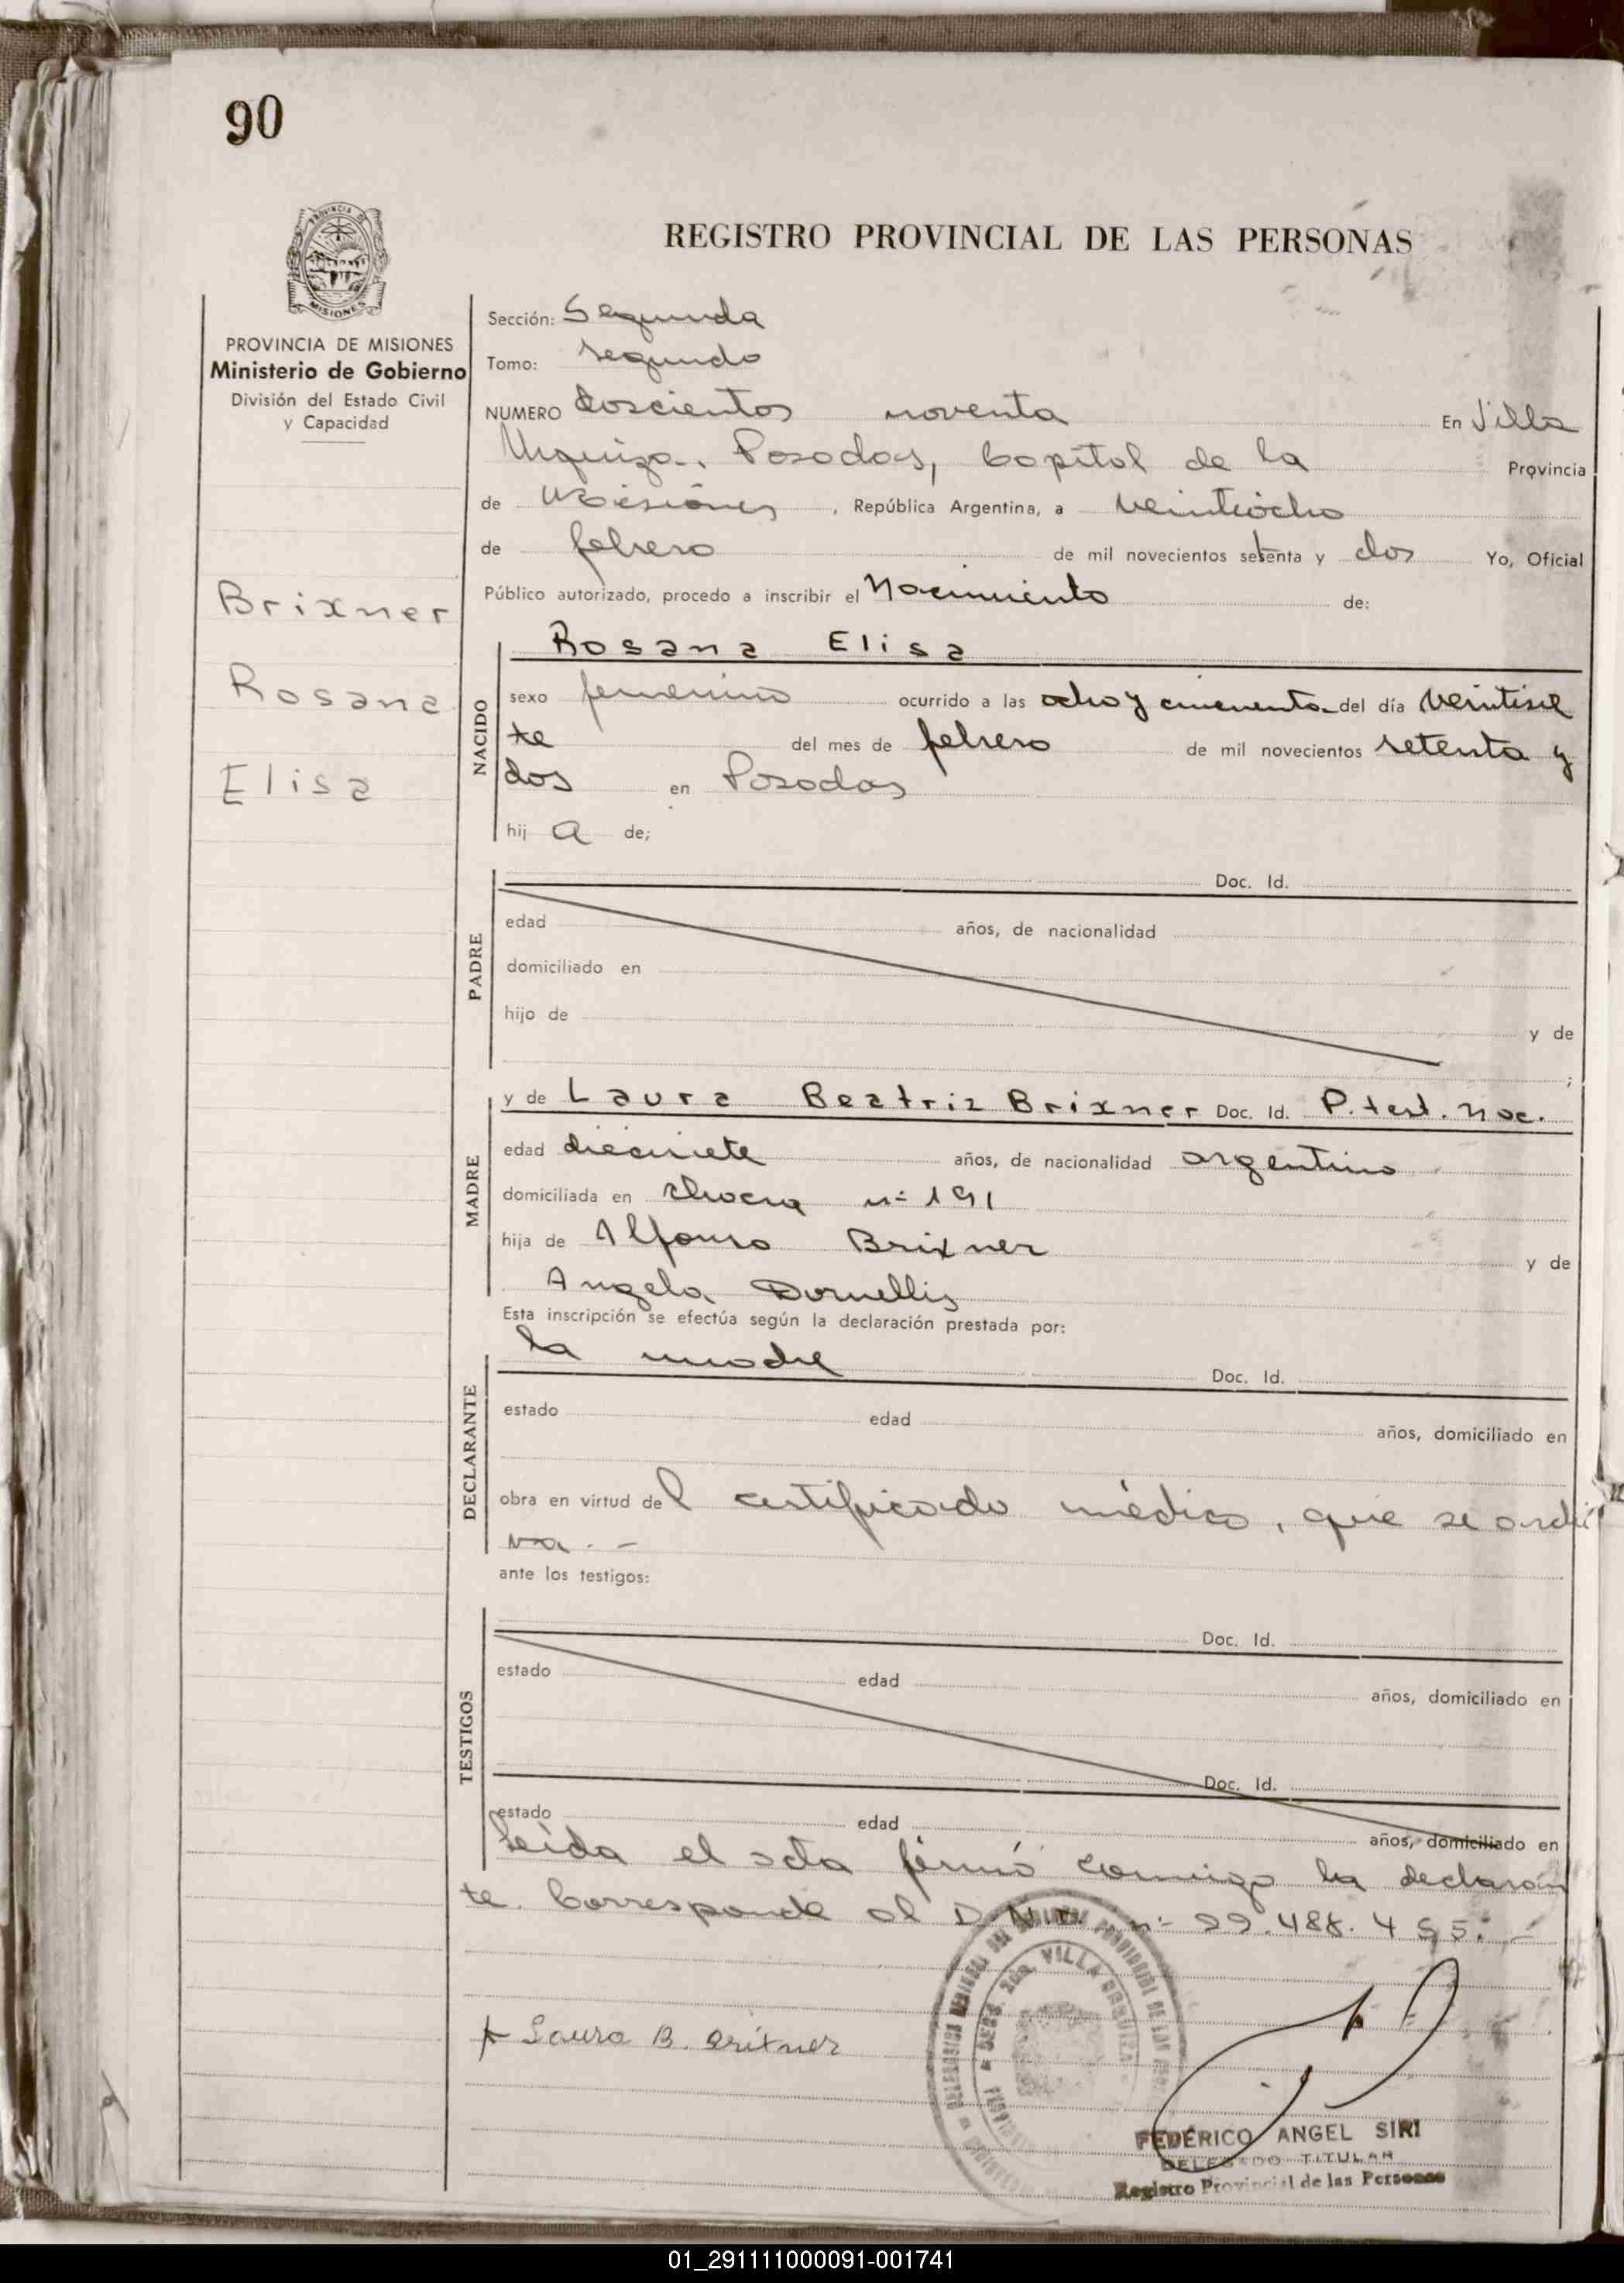 90
PROVINCIA DE
MISIONES
REGISTRO PROVINCIAL DE LAS PERSONAS
PROVINCIA DE MISIONES
Ministerio de Gobierno
División del Estado Civil
y Capacidad
Brixner
Rosana
Elisa
Sección: Segunda
Tomo: segundo
NUMERO doscientos noventa En Villa
Urquiza, Posadas, Capital de la Provincia
de Misiones, República Argentina, a veintiocho
de febrero de mil novecientos setenta y dos Yo, Oficial
Público autorizado, procedo a inscribir el Nacimiento de:
NACIDO
Rosana Elisa
sexo femenino ocurrido a las ocho y cincuenta del día veintisie
te del mes de febrero de mil novecientos setenta y
dos en Posadas
hij a de;
PADRE
Doc. Id.
edad años, de nacionalidad
domiciliado en
hijo de y de
;
MADRE
y de Laura Beatriz Brixner Doc. Id. P. test. nac.
edad diecisiete años, de nacionalidad argentina
domiciliada en chacra nº 191
hija de Alfonso Brixner y de
Angela Dornellis
Esta inscripción se efectúa según la declaración prestada por:
DECLARANTE
la madre Doc. Id.
estado edad años, domiciliado en
obra en virtud del certificado médico, que se archi
va. -
ante los testigos:
TESTIGOS
Doc. Id.
estado edad años, domiciliado en
Doc. Id.
estado edad años, domiciliado en
Leida el acta firmó conmigo la declaran
te. Corresponde al D.N.I. nº 22.488.495. -
VILLA URQUIZA
Laura B. Brixner
FEDERICO ANGEL SIRI
DELEGADO TITULAR
Registro Provincial de las Personas
01_291111000091-001741